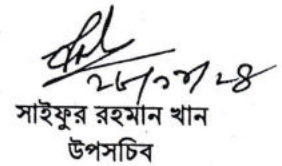 সাইফুর রহমান খান
উপসচিব